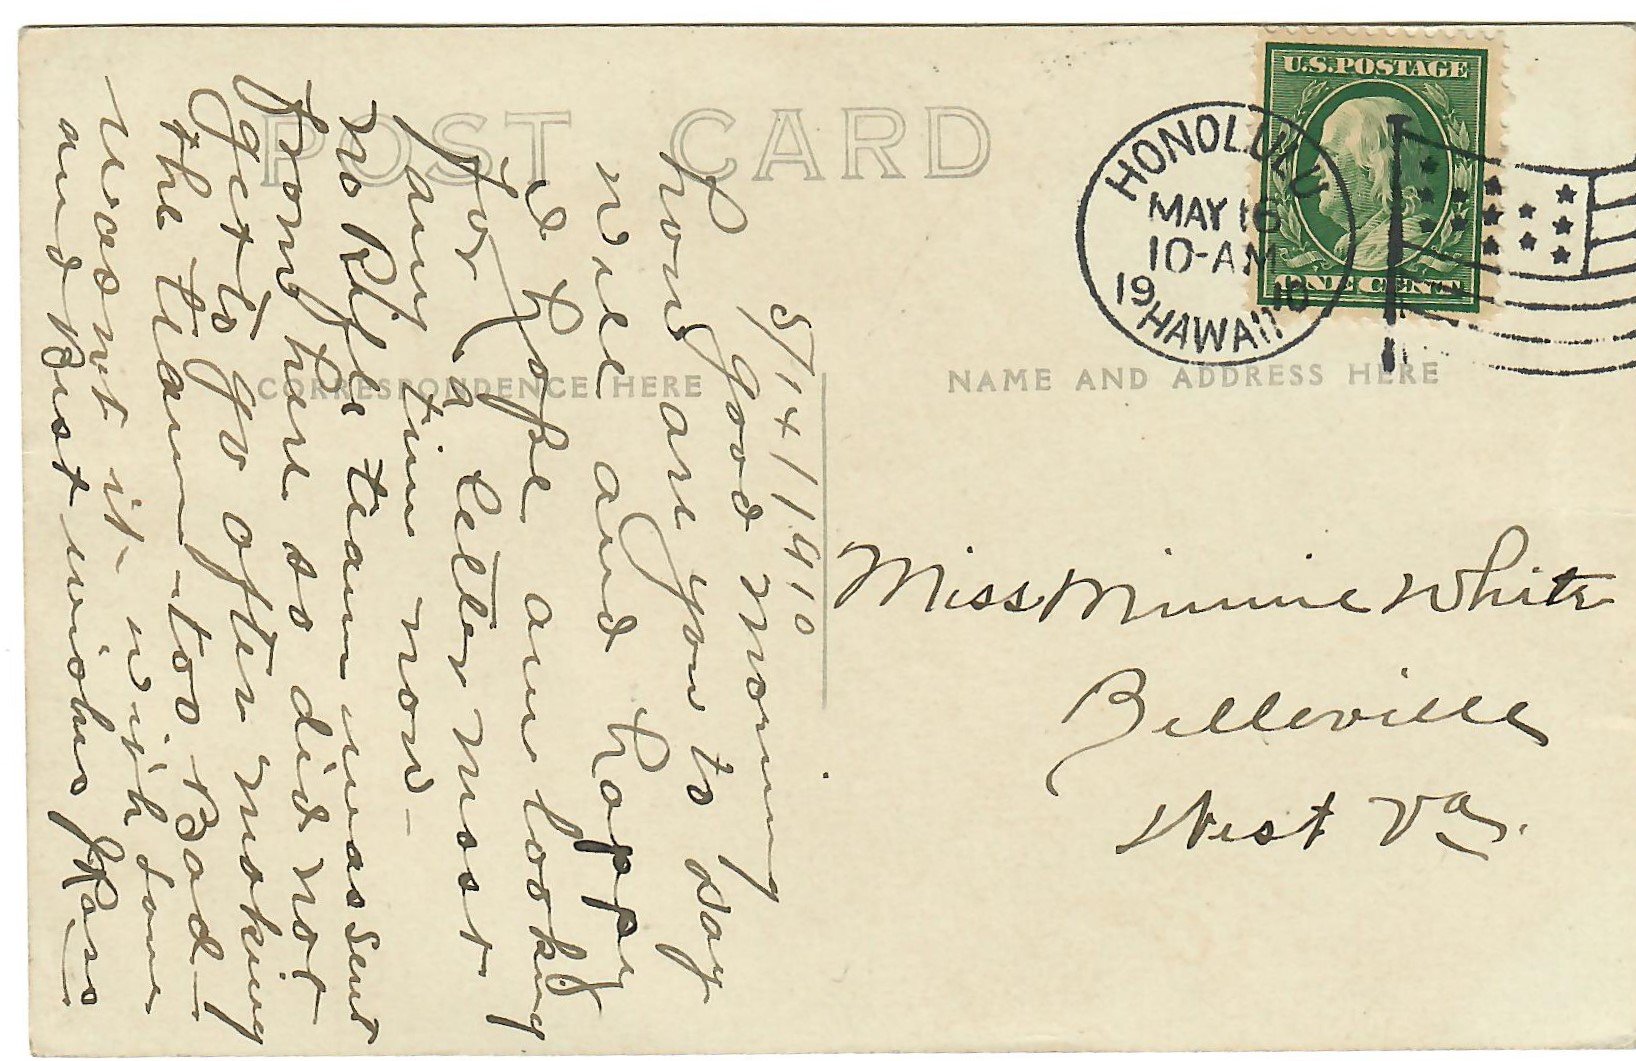 POST CARD
CORRESPONDENCE HERE
NAME AND ADDRESS HERE
U.S. POSTAGE
ONE CENT
HONOLULU
MAY 16
10-AM
1910
HAWAII
5/14/1910
good morning
how are you to day
well and happy
I hope am looking
for a letter most
any time now-
no Rifle team was sent
from here so did not
get to go after making
the team-too Bad-
wasnt it- with love
and Best wishes
Miss Minnie White
Belleville
West Va.